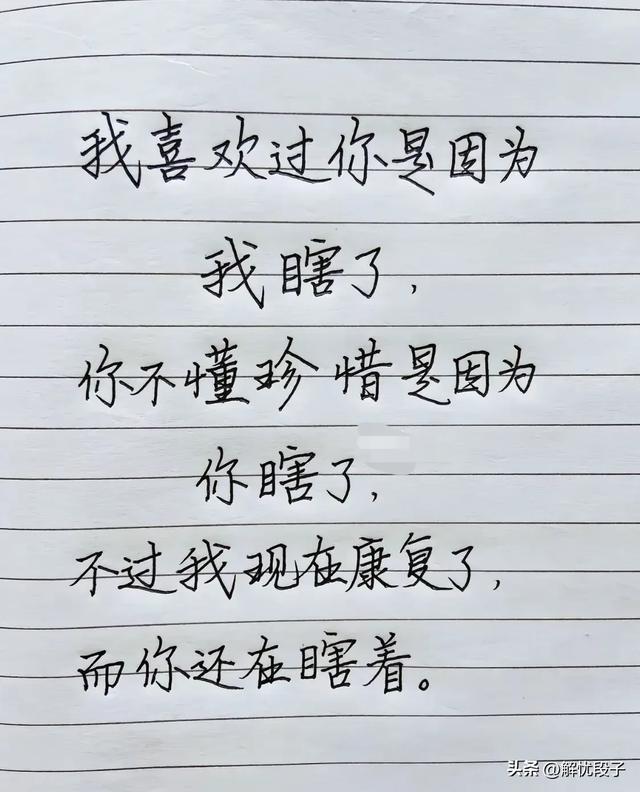 我喜欢过你是因为
我瞎了,
你不懂珍惜是因为
你瞎了,
不过我现在康复了,
而你还在瞎着。
头条 @解忧段子